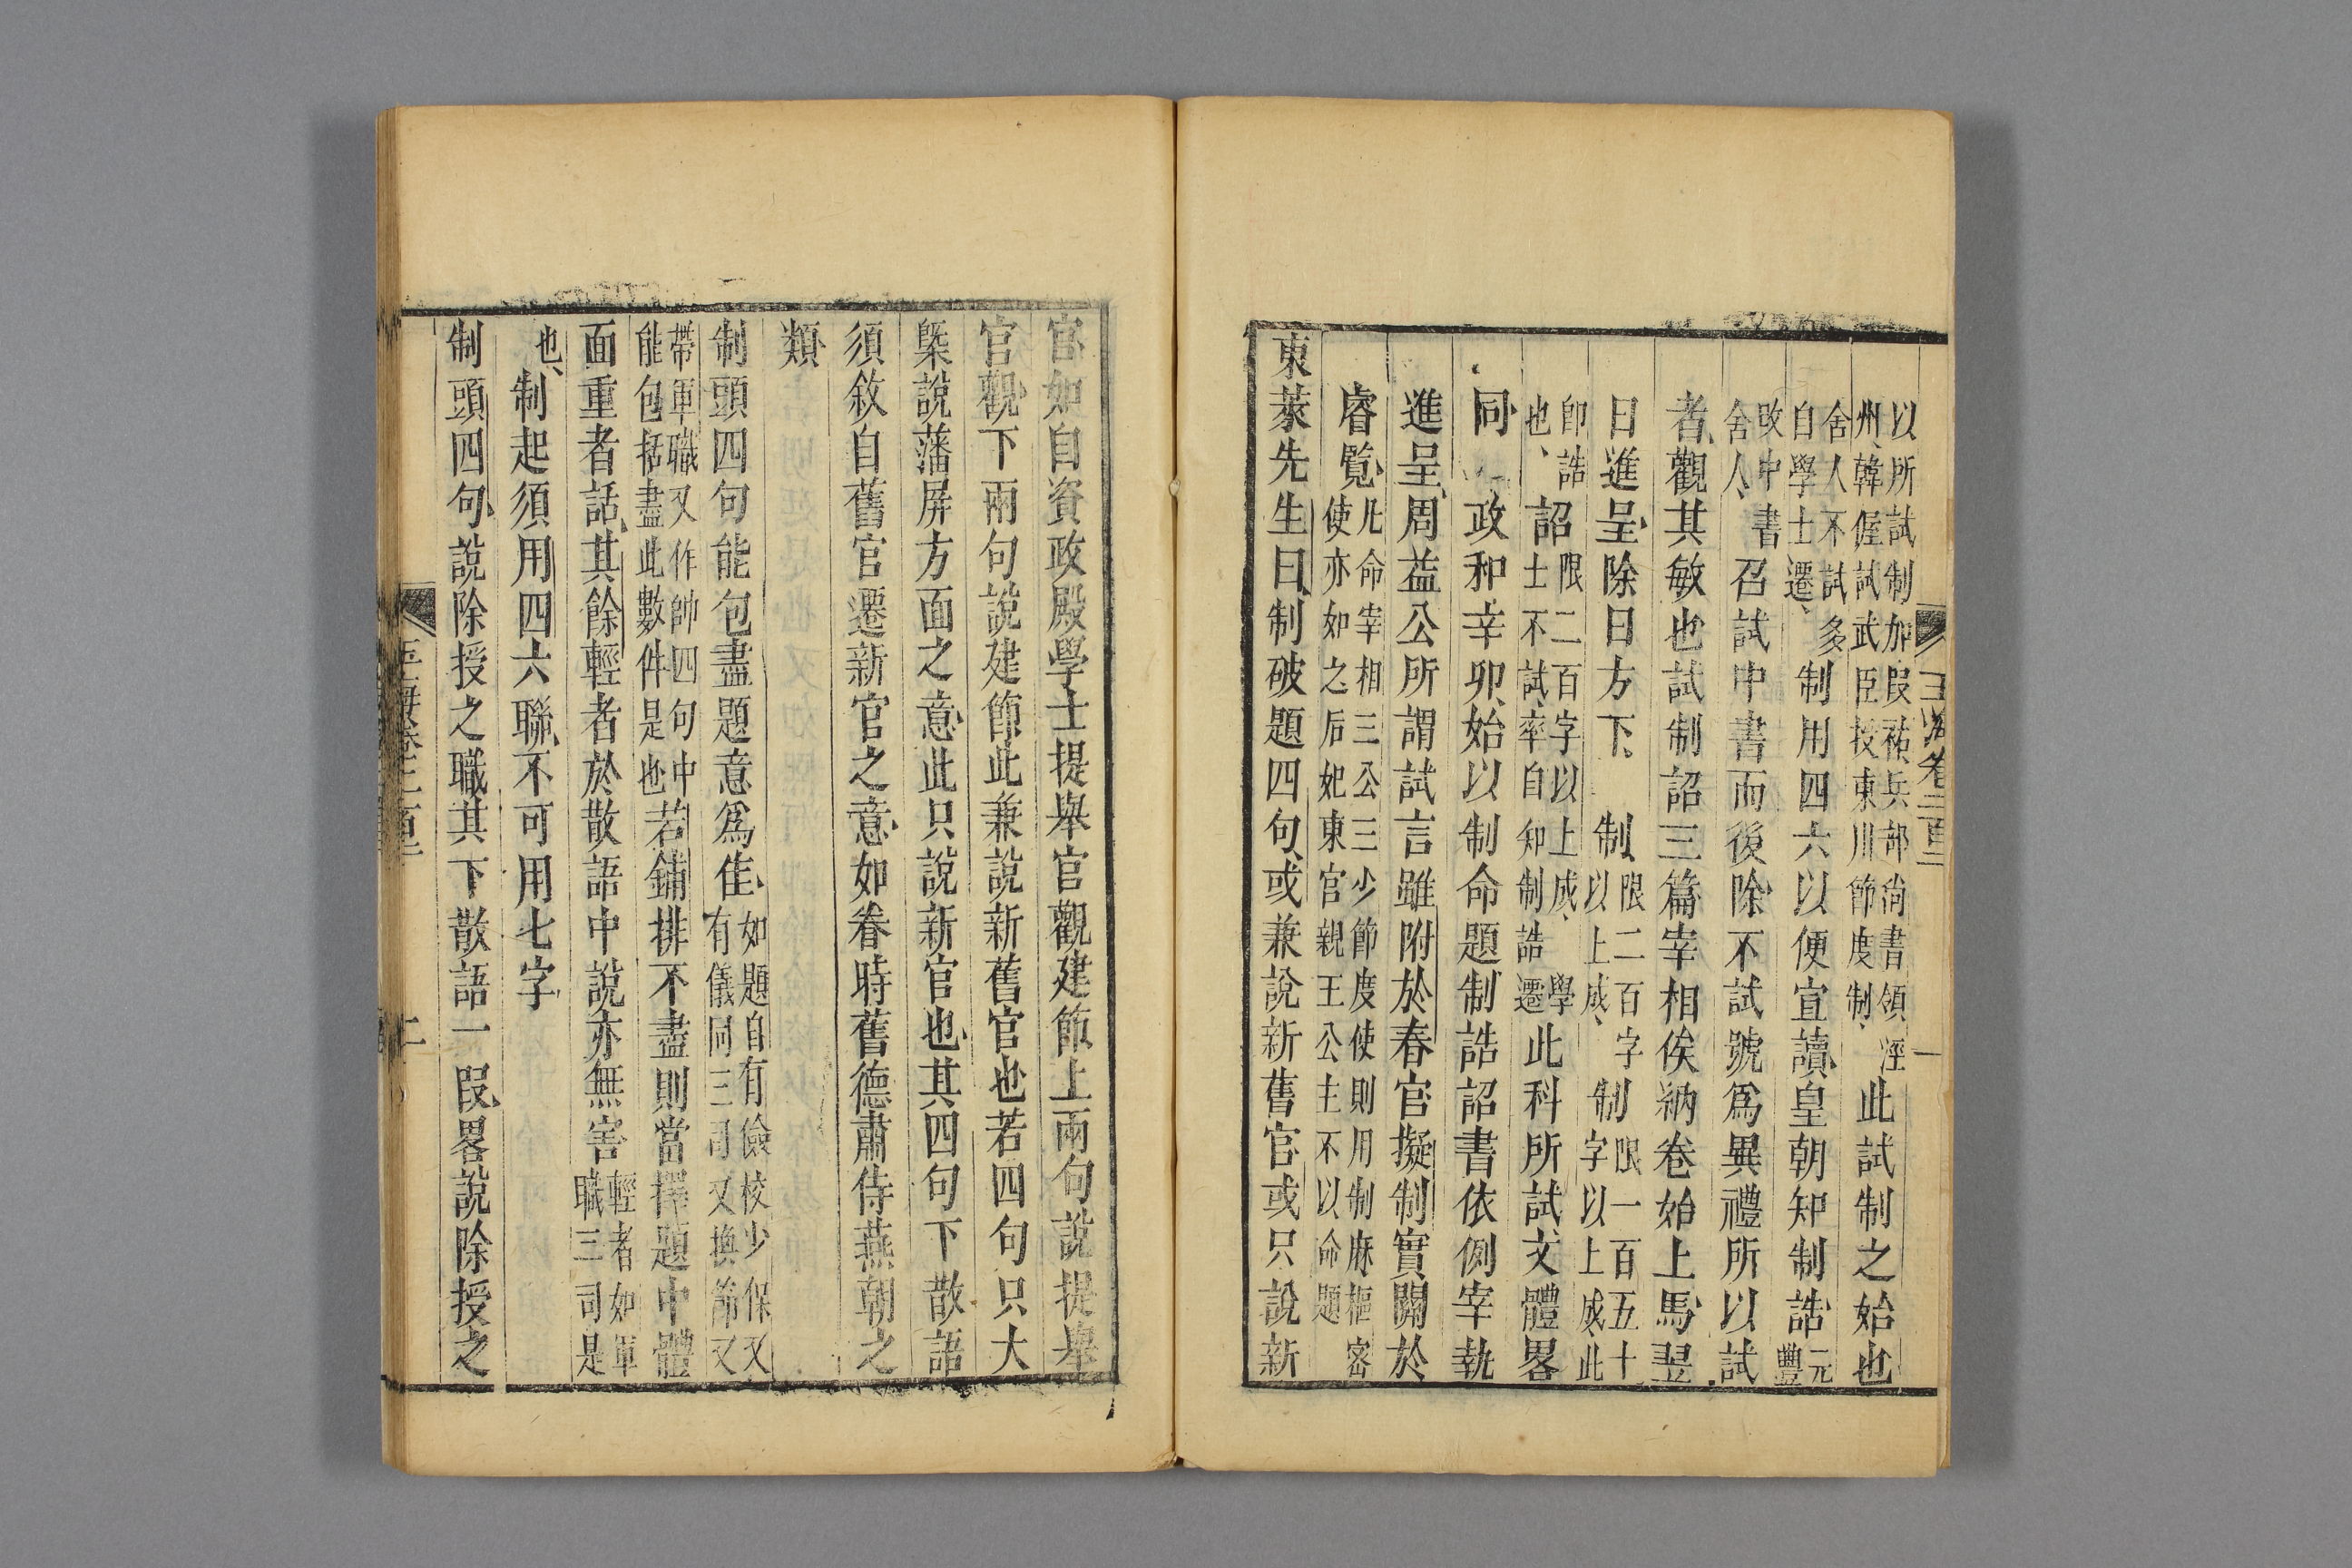 玉海卷二百二
一
以所試制加段祐兵部尚書領涇
州韓偓試武臣授東川節度制
此試制之始也
舍人不試多
自學士遷
制用四六以便宣讀皇朝知制誥
元
豐
改中書
舍人
召試中書而後除不試號爲異禮所以試
者觀其敏也試制詔三篇宰相俟納卷始上馬翌
日進呈除日方下
制
限二百字
以上成
制
限一百五十
字以上成此
即誥
也
詔
限二百字以上成
學
士不試率自知制誥遷
此科所試文體畧
同
政和辛卯始以制命題制誥詔書依例宰執
進呈周益公所謂試言雖附於春官擬制實關於
睿覧
凡命宰相三公三少節度使則用制麻樞密
使亦如之后妃東官親王公主不以命題
東萊先生曰制破題四句或兼說新舊官或只說新
官如自資政殿學士提舉官觀建節上兩句說提舉
官觀下兩句說建節此兼說新舊官也若四句只大
槩說藩屏方面之意此只說新官也其四句下散語
須敘自舊官遷新官之意如眷時舊德肅侍燕朝之
類
制頭四句能包盡題意爲佳
如題自有儉校少保又
有儀同三司又換節又
帶軍職又作帥四句中
能包括盡此數件是也
若鋪排不盡則當擇題中體
面重者話其餘輕者於散語中說亦無害
輕者如軍
職三司是
也
制起須用四六聯不可用七字
制頭四句說除授之職其下散語一段畧說除授之
二